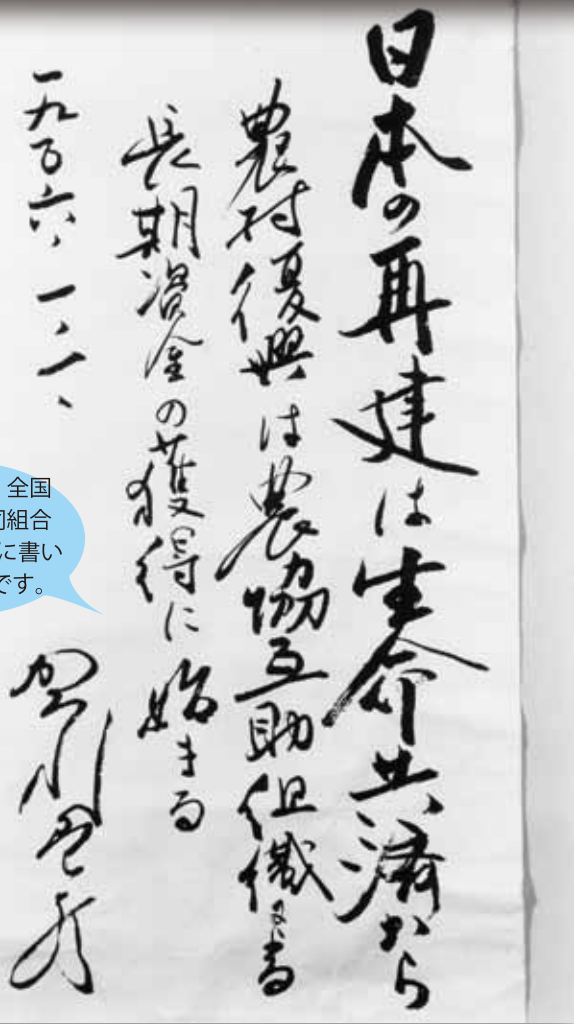 日本の再建は生命共済から
農村復興は農協互助組織による
長期資金の獲得に始まる
一九五六、一、一、
賀川豊彦
全国
同組合
に書い
です。